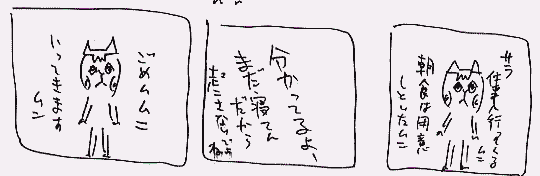 サラ
仕事行ってくる
ムニ
朝食は用意
しといたムニ
分かってるよ、
まだ寝てん
だから
起こさないでよ
ね
ごめムムニ
いってきます
ムン